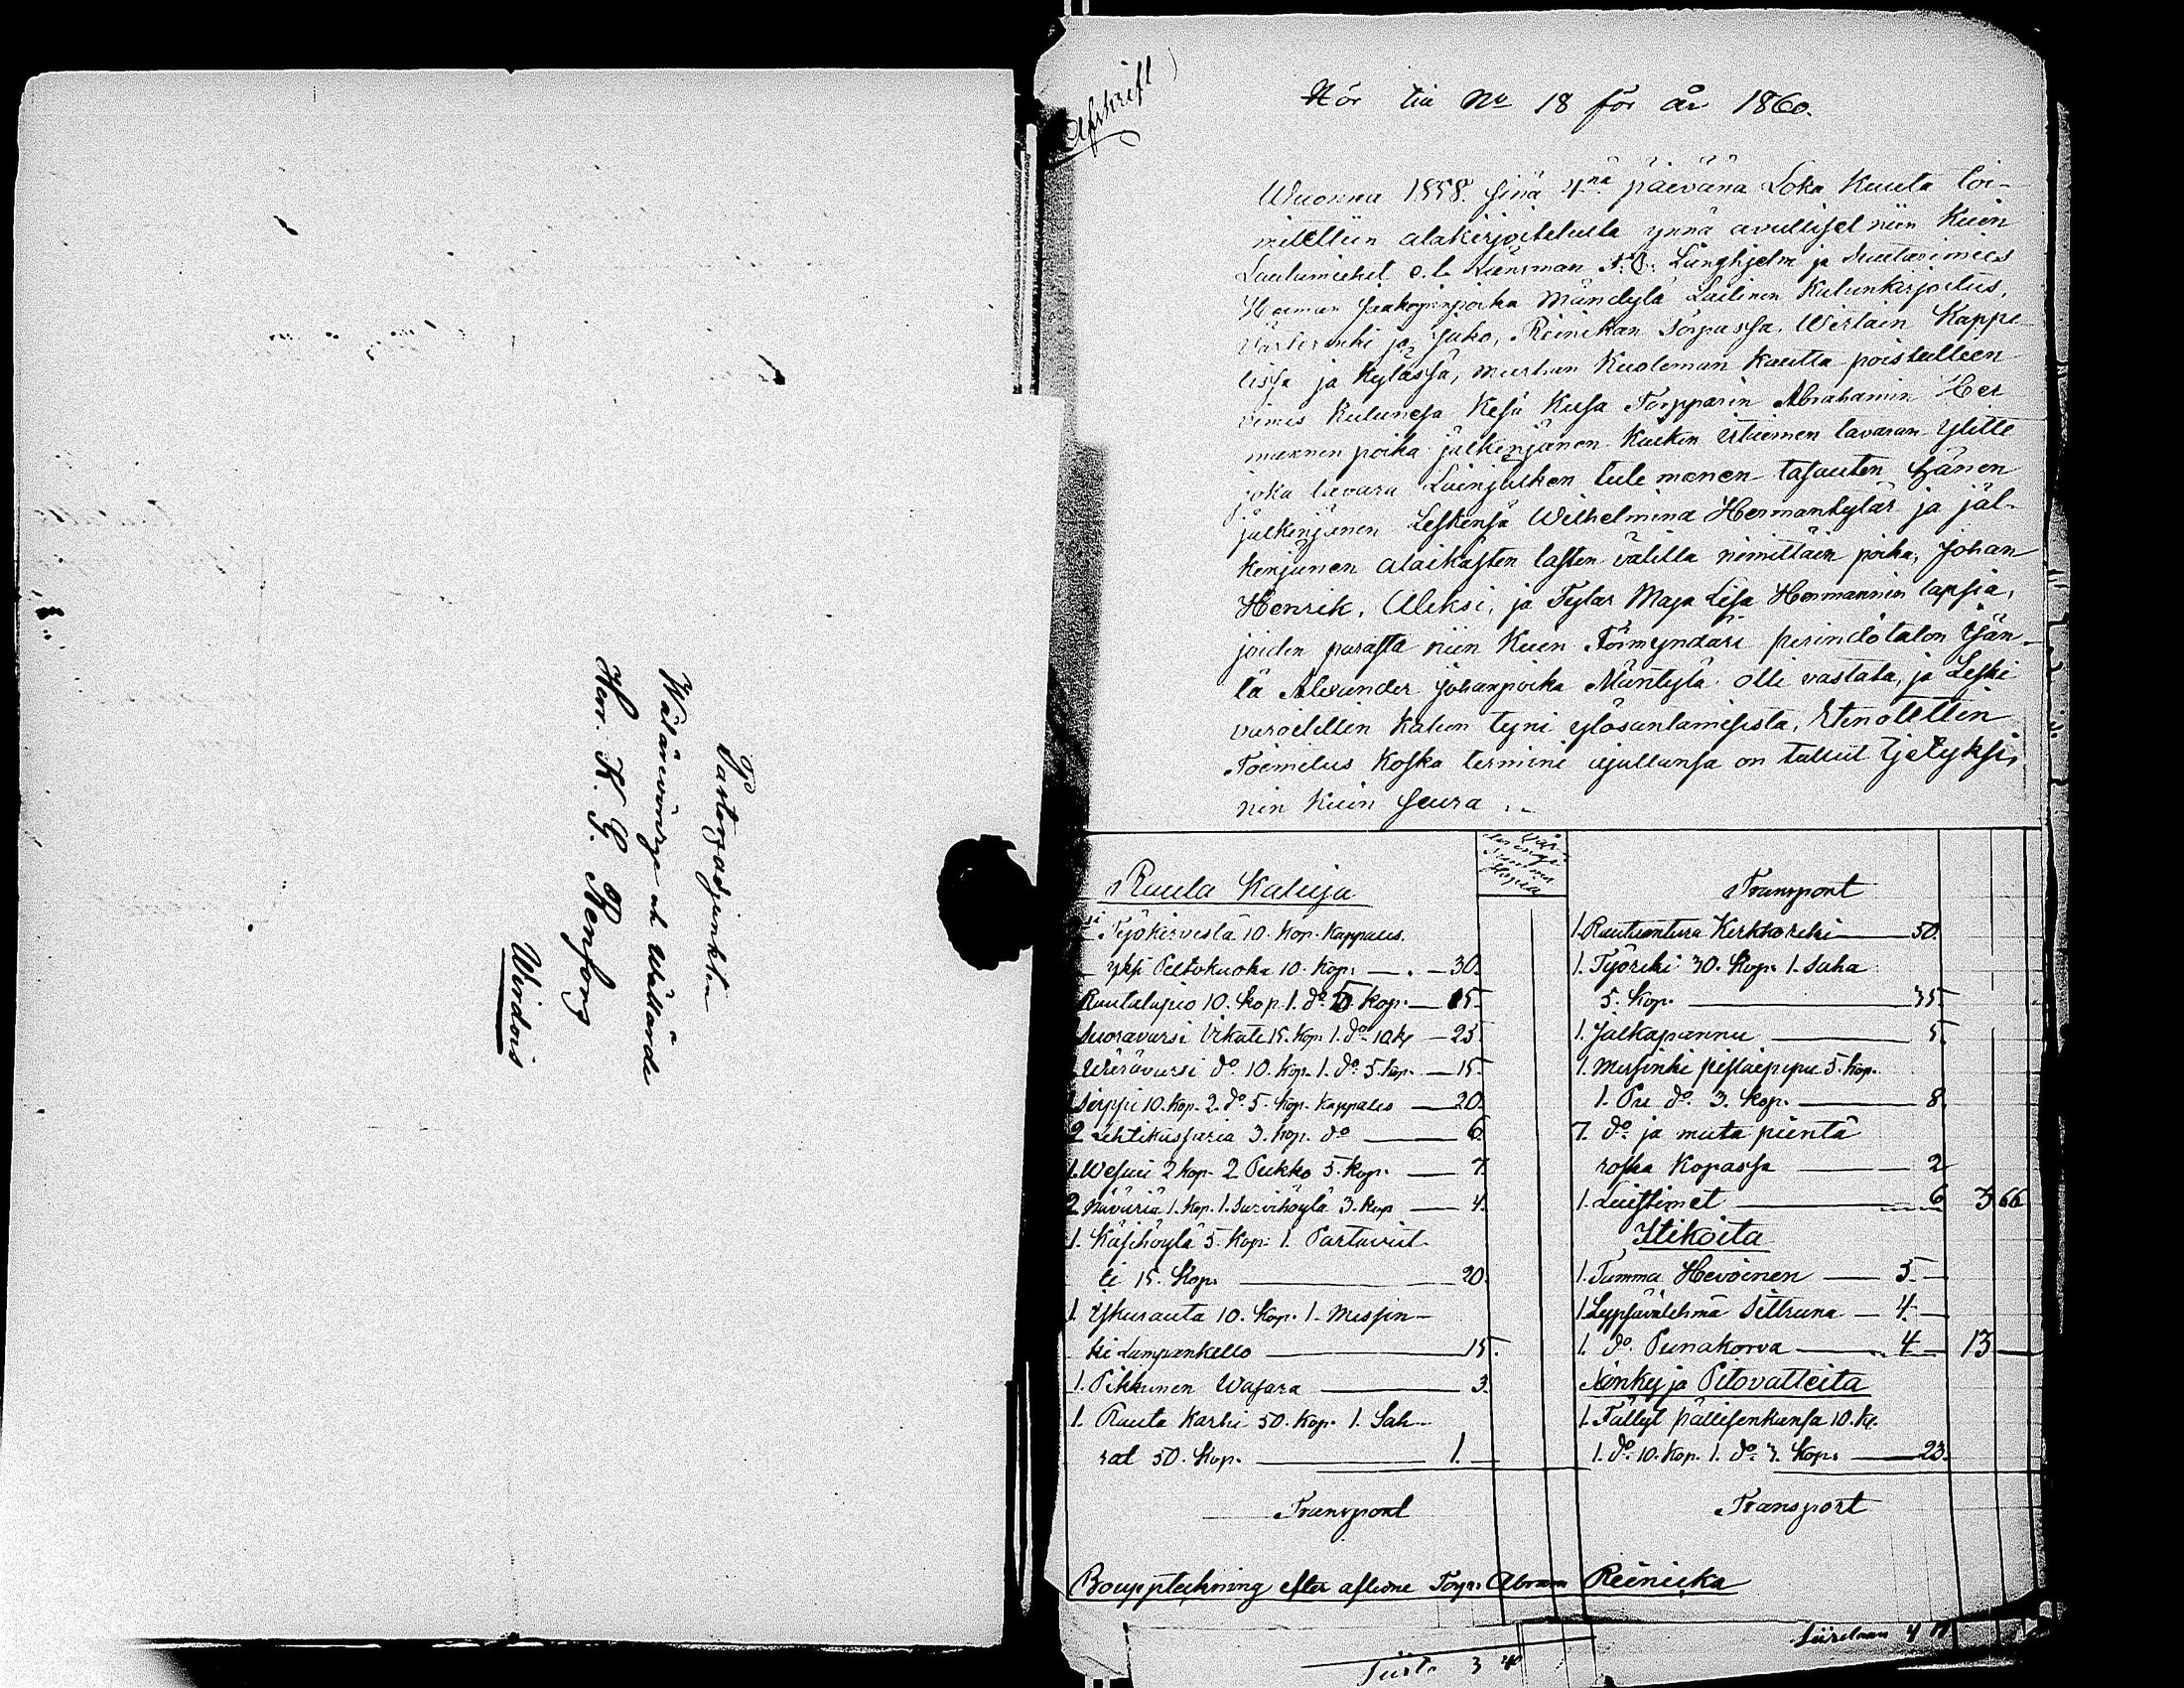 Pastorsadjunkten
Wälärevördige och Wällärde
Herr. K. G. Renfors
Wirdois
Afskrift
Hör tia No 18 för år 1860.
Wuonna 1858. sinä 4nä päivänä Loka Kuuta toi-
mitettiin alakirjoitetuilta ynnä avulliset niin Kuin
Lautamiehet e.l. Länsman Långhjelm ja
Herman Jaakopinpoika Mändylä Laillinen Kalunkirjoitus,
Värterinki ja Jako, Reinikan Torpassa, Wirtain Kappe-
lissa ja Kylässä, Kuoleman Kautta poistulleen
Kulunesa Kesä Kusa Torpparin Abrahamin Her
mannen poika jälkenjänen Kaiken irtaimen tavaran ylitte
joka tavara Lainjälken tule manen tasauten hänen
jälkenjänen Leskensä Wilhelmina Hermantytär ja jäl-
kenjänen alaikästen lasten välillä nimittäin poika, Johan
Henrik, Aleksi, ja Tytar Maja Lisa Hermannin lapsia,
joiden parasta niin Kuin Förmyndäri perindötalon Isän-
tä Alexander Johanpoika Mäntylä olli vastata, ja Leski
varoitettin Kalun tyni ylösantamisesta, Etenotettin
Toimitus Koska termini ajallansa on tullut
nin Kuin Seura..
Rauta Kaluja
Työkirvestä 10. Kop. Kappales.
yksi Peltokuoka 10. Kop. — 30.
Rautalapio 10. kop. 1. do 5 kop. — 15
Suoravarsi Vikate 15. Kop. 1. do 10 k — 25
Wärävarsi do. 10. Kop. 1. do 5. kop. — 15.
Sirppi 10. Kop. 2. do 5. kop. Kappales — 20.
2 Lehtikassaria 3. kop. do — 6.
1. Wesuri 2 kop. 2 Pukko 5. Kop. — 7
2 Näväriä 1. Kop. 1. Survihöylä 3. Kop — 4.
1. Käsihöylä 5. Kop. 1. Partaveit-
ti 15. Kop. — 20.
1. Iskurauta 10. Kop. 1. Messin-
ki Lampankello — 15.
1. Pikkunen Wasara — 3.
1. Rauta Karhi 50. Kop. 1. Sah-
rat 50. Kop. — 1.
Transport
Transport
1. Rautiantura Kirkkoreki — 50.
1. Työreki 30. Kop. 1. Saha
5. Kop. — 35
1. Jalkapannu — 5.
1. Messinki 5. kop.
1. Puu do. 3. kop. — 8.
7. do ja muta pientä
roska Kopassa — 2
1. Luistimet — 6 3 66
Itikoita
1. Tamma Hevoinen — 5 —
1 Lypsävälehmä Sittruna — 4. —
1. do. Punakorva — 4 — 13 —
Sänky ja Pitovatteita
1. Fällyt pällisenkansa 10. k.
1. do. 10. Kop. 1. do 3. Kop. — 23.
Transport
Bouppteckning efter aflidne Torp. Abram Reinicka
Siirto 3 4